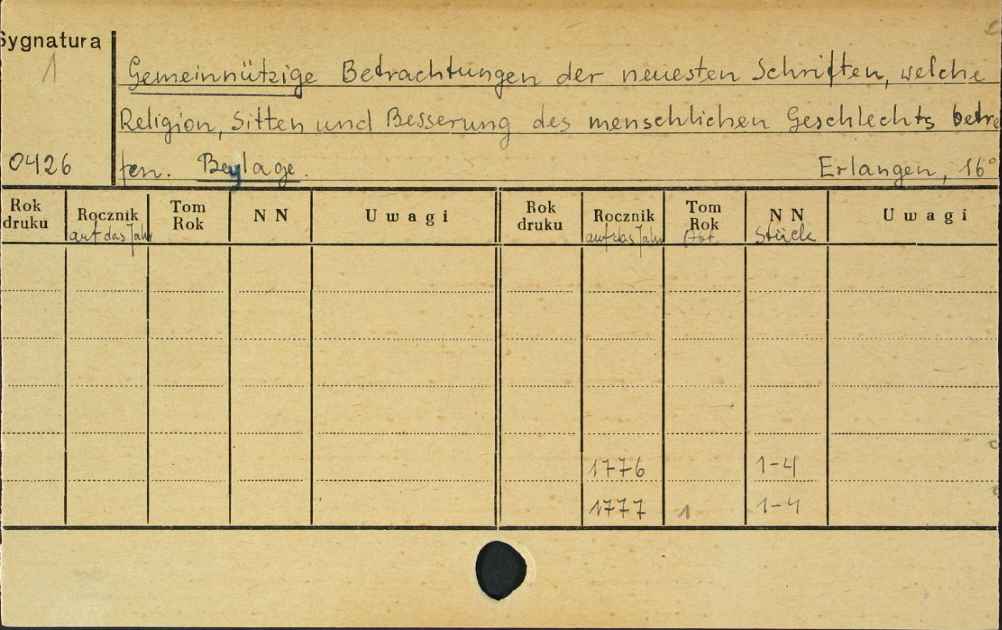 Sygnatura
1
Gemeinnützige Betrachtungen der neuesten Schriften, welche
Religion, Sitten und Besserung des menschlichen Geschlechts betre
0426 fen. Beylage. Erlangen, 16°
Rok druku Rocznik Tom Rok N N Uwagi Rok druku Rocznik Tom Rok N N Uwagi
auf das Jahr auf das Jahr Stück
1776 1-4
1777 1 1-4